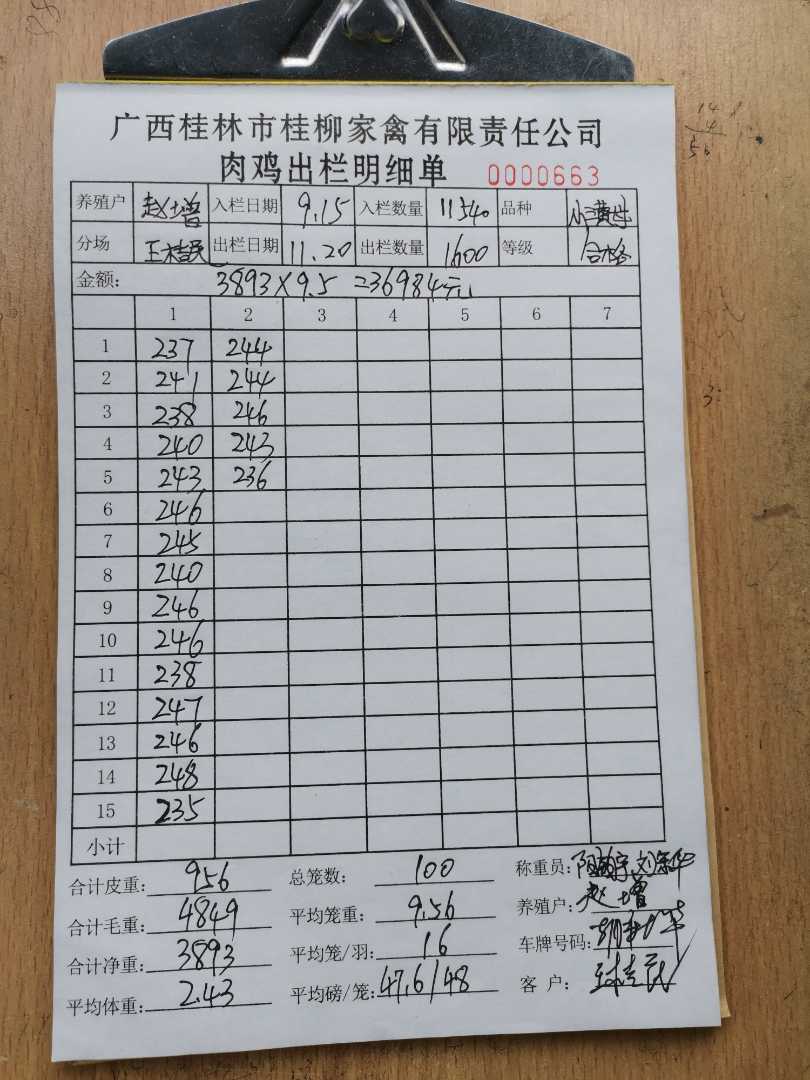 广西桂林市桂柳家禽有限责任公司
肉鸡出栏明细单 0000663
养殖户 赵增 入栏日期 9.15 入栏数量 11540 品种
分场 出栏日期 11.20 出栏数量 1600 等级 合格
金额: 3893×9.5=36984元
1 2 3 4 5 6 7
1 237 244
2 241 244
3 238 246
4 240 243
5 243 236
6 246
7 245
8 240
9 246
10 246
11 238
12 247
13 246
14 248
15 235
小计
合计皮重: 956 总笼数: 100 称重员:
合计毛重: 4849 平均笼重: 9.56 养殖户: 赵增
合计净重: 3893 平均笼/羽: 16 车牌号码:
平均体重: 2.43 平均磅/笼: 47.6/48 客户:
14
4
56
3: